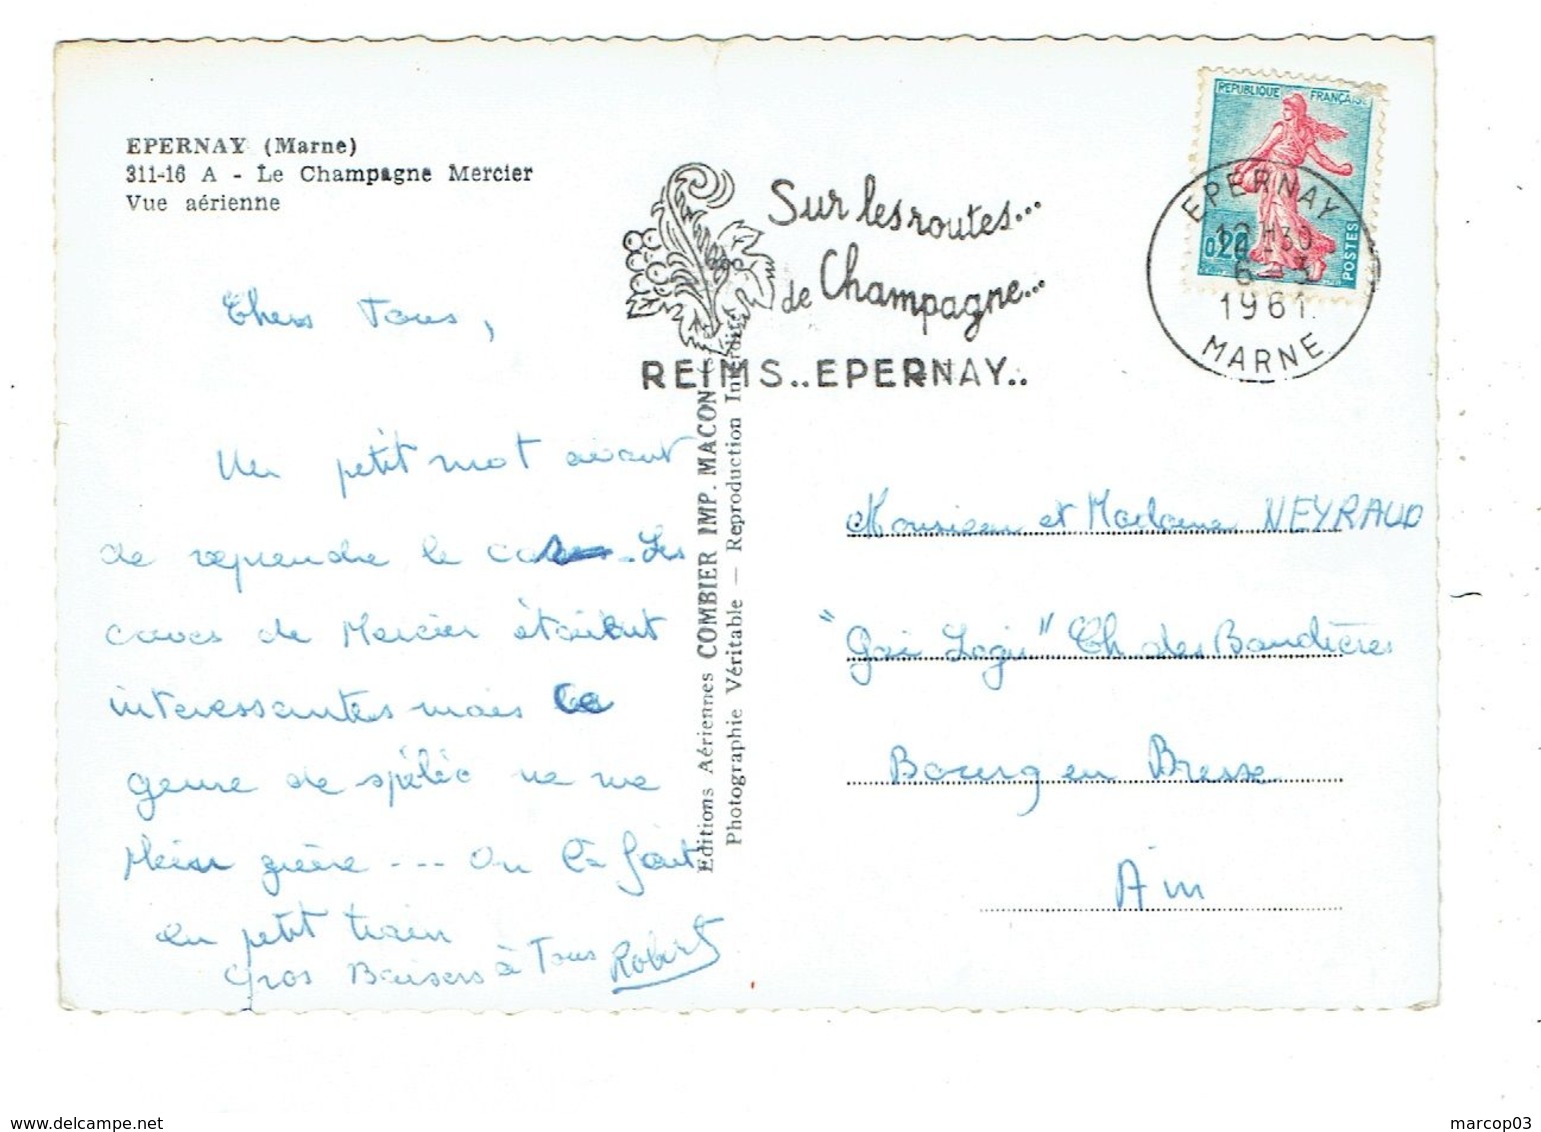 EPERNAY (Marne)
311-16 A - Le Champagne Mercier
Vue aérienne
Chers Tous,
Un petit mot avant
de reprendre le . Les
caves de Mercier étaient
interessantes mais ce
genre de spéléo ne me
plaisir guère --- On l'a fait
en petit train
Gros Baisers à Tous Robert
Editions Aériennes COMBIER IMP. MACON
Photographie Véritable — Reproduction Interdite
Sur les routes...
de Champagne...
REIMS..EPERNAY..
REPUBLIQUE FRANÇAISE
0,20
POSTES
EPERNAY
12H30
6-3
1961
MARNE
Monsieur et Madame NEYRAUD
"Gai Logis" Ch. des Baudières
Bourg en Bresse
Ain
marcop03